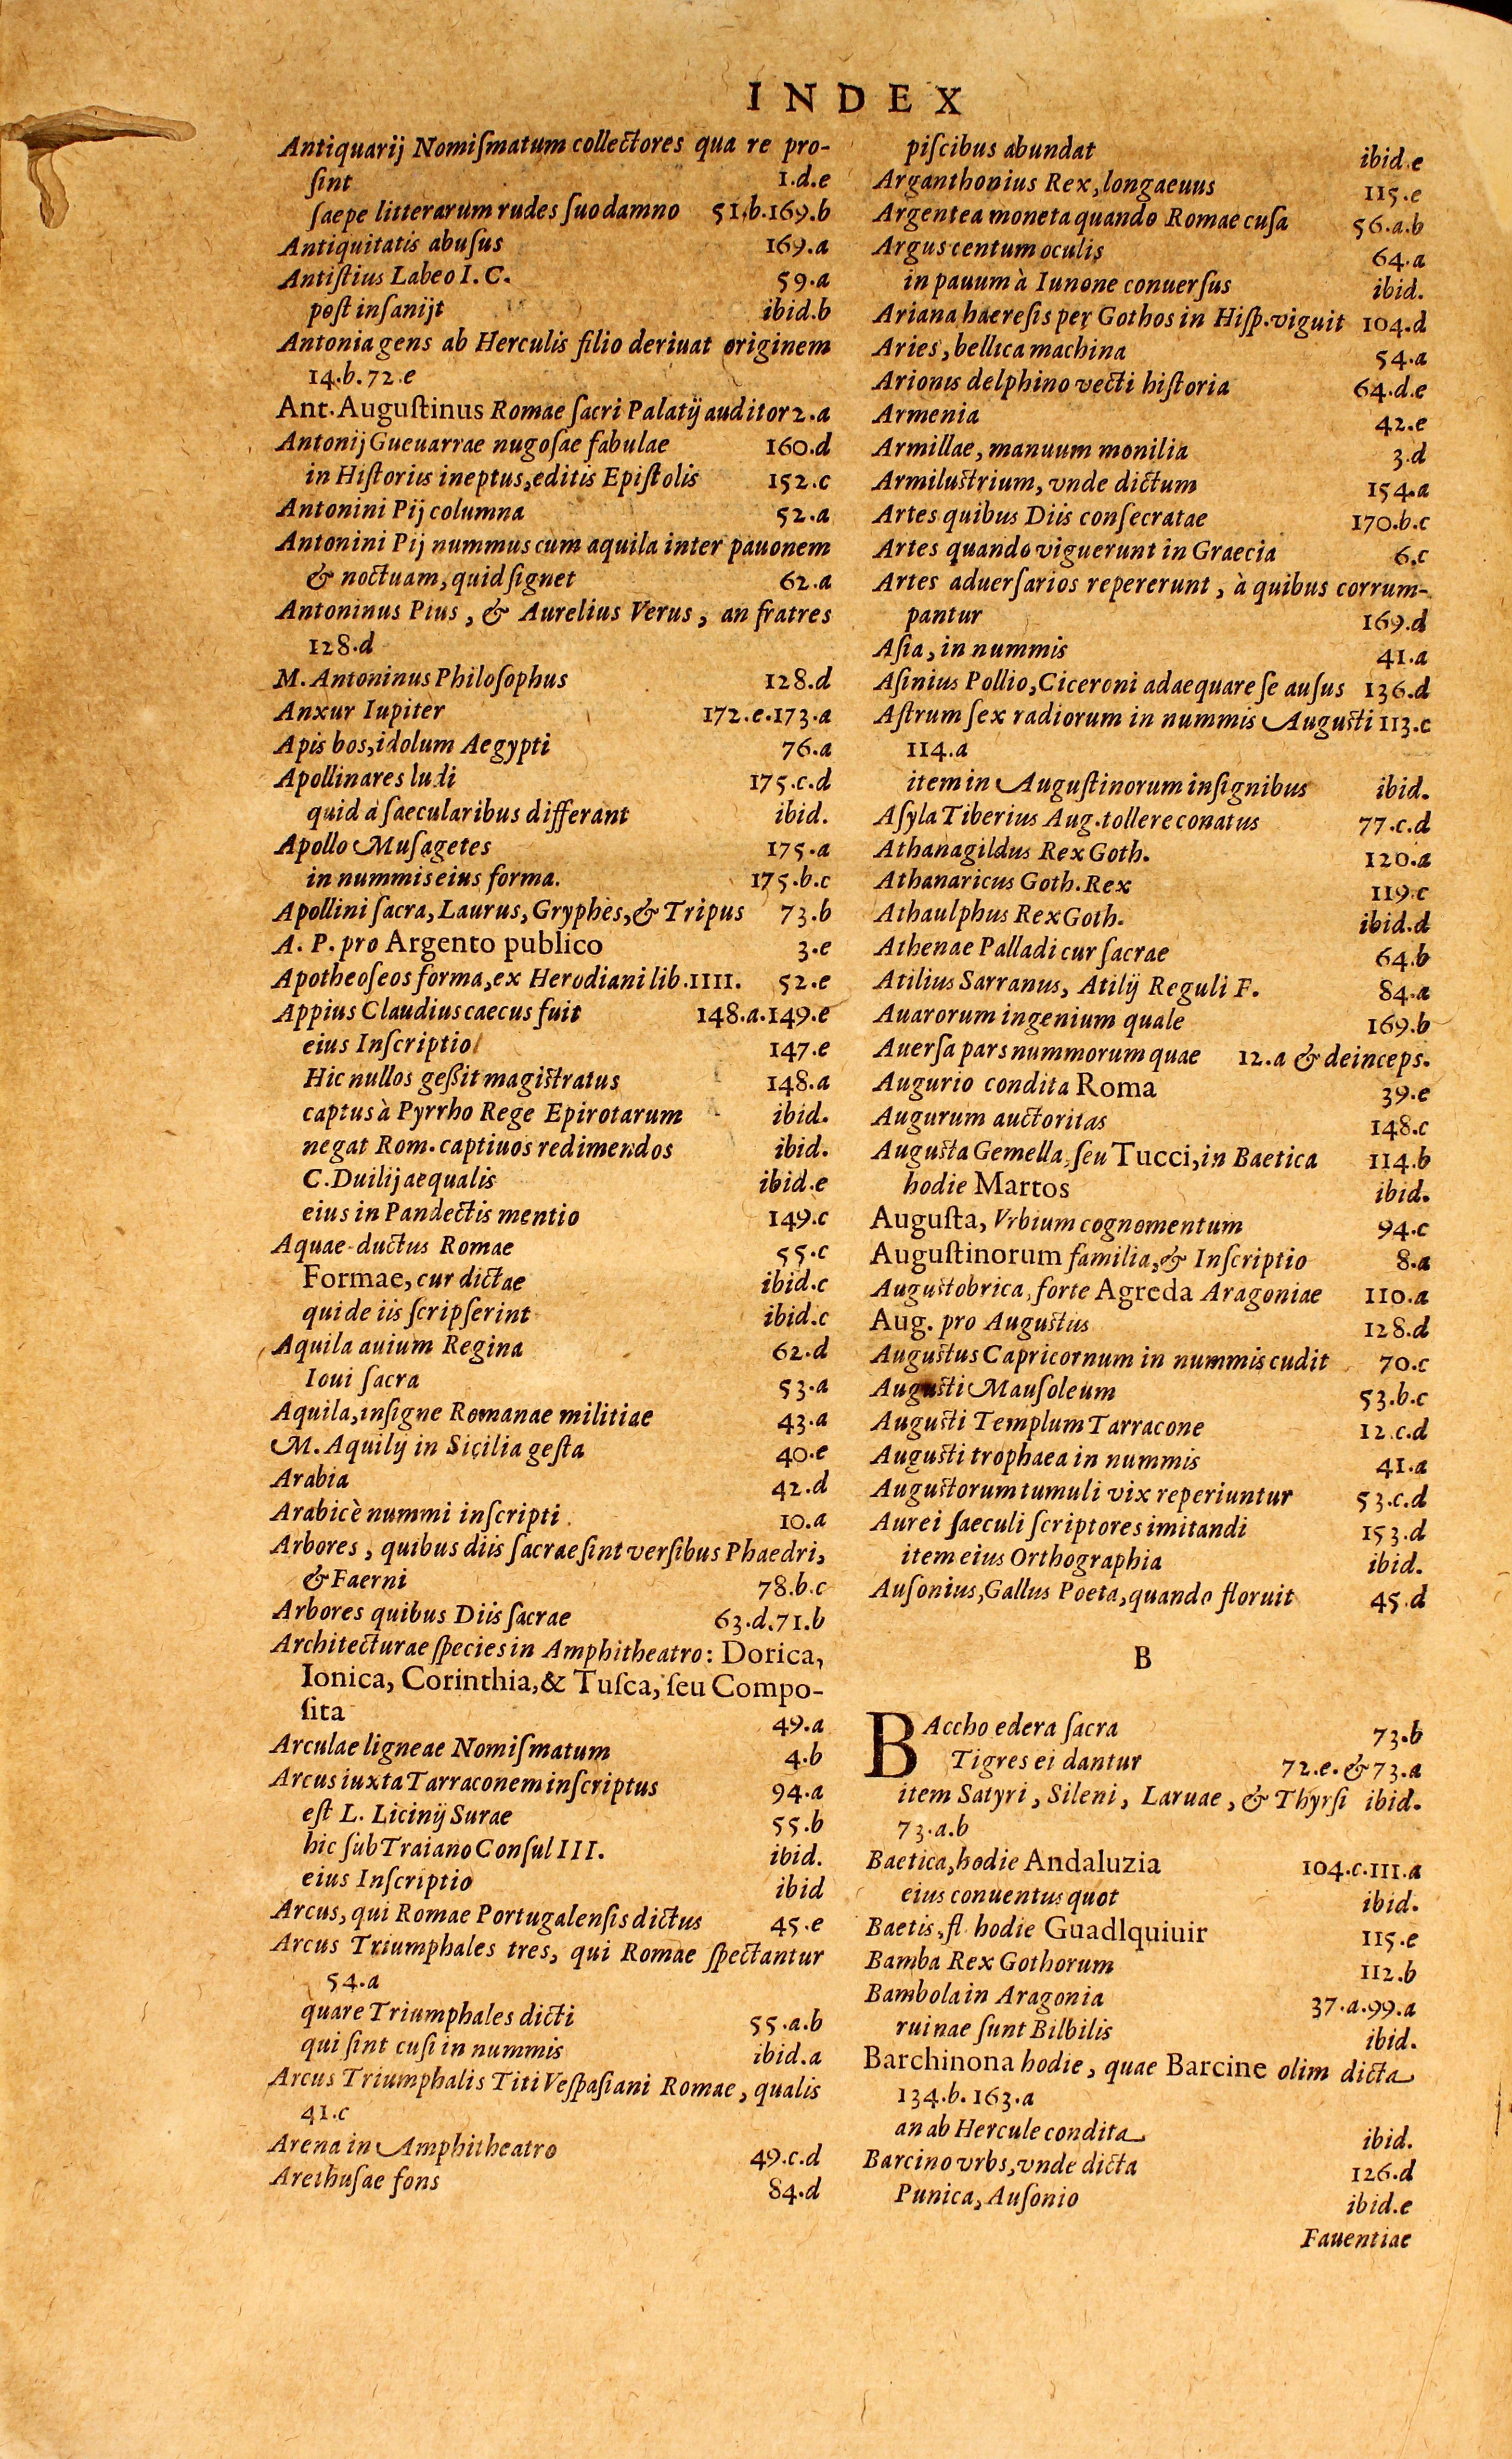 INDEX
Antiquarij Nomiſmatum collectores qua re pro-
ſint 1.d.e
ſaepe litterarum rudes ſuo damno 51.b.169.b
Antiquitatis abuſus 169.a
Antiſtius Labeo I. C. 59.a
poſt inſanijt ibid.b
Antonia gens ab Herculis filio deriuat originem
14.b.72.e
Ant. Auguſtinus Romae ſacri Palatij auditor 2.a
Antonij Gueuarrae nugoſae fabulae 160.d
in Hiſtoriis ineptus, editis Epiſtolis 152.c
Antonini Pij columna 52.a
Antonini Pij nummus cum aquila inter pauonem
& noctuam, quid ſignet 62.a
Antoninus Pius, & Aurelius Verus, an fratres
128.d
M. Antoninus Philoſophus 128.d
Anxur Iupiter 172.e.173.a
Apis bos, idolum Aegypti 76.a
Apollinares ludi 175.c.d
quid à ſaecularibus differant ibid.
Apollo Muſagetes 175.a
in nummis eius forma. 175.b.c
Apollini ſacra, Laurus, Gryphes, & Tripus 73.b
A. P. pro Argento publico 3.e
Apotheoſeos forma, ex Herodiani lib. IIII. 52.e
Appius Claudius caecus fuit 148.a.149.e
eius Inſcriptio 147.e
Hic nullos geßit magiſtratus 148.a
captus à Pyrrho Rege Epirotarum ibid.
negat Rom. captiuos redimendos ibid.
C. Duilij aequalis ibid.e
eius in Pandectis mentio 149.c
Aquae-ductus Romae 55.c
Formae, cur dictae ibid.c
qui de iis ſcripſerint ibid.c
Aquila auium Regina 62.d
Ioui ſacra 53.a
Aquila, inſigne Romanae militiae 43.a
M. Aquilij in Sicilia geſta 40.e
Arabia 42.d
Arabicè nummi inſcripti. 10.a
Arbores, quibus diis ſacrae ſint verſibus Phaedri,
& Faerni 78.b.c
Arbores quibus Diis ſacrae 63.d.71.b
Architecturae ſpecies in Amphitheatro: Dorica,
Ionica, Corinthia, & Tuſca, ſeu Compo-
ſita 49.a
Arculae ligneae Nomiſmatum 4.b
Arcus iuxta Tarraconem inſcriptus 94.a
eſt L. Licinij Surae 55.b
hic ſub Traiano Conſul III. ibid.
eius Inſcriptio ibid
Arcus, qui Romae Portugalenſis dictus 45.e
Arcus Triumphales tres, qui Romae ſpectantur
54.a
quare Triumphales dicti 55.a.b
qui ſint cuſi in nummis ibid.a
Arcus Triumphalis Titi Veſpaſiani Romae, qualis
41.c
Arena in Amphitheatro 49.c.d
Arethuſae fons 84.d
piſcibus abundat ibid.e
Arganthonius Rex, longaeuus 115.e
Argentea moneta quando Romae cuſa 56.a.b
Argus centum oculis 64.a
in pauum à Iunone conuerſus ibid.
Ariana haereſis per Gothos in Hiſp. viguit 104.d
Aries, bellica machina 54.a
Arionis delphino vecti hiſtoria 64.d.e
Armenia 42.e
Armillae, manuum monilia 3.d
Armiluſtrium, vnde dictum 154.a
Artes quibus Diis conſecratae 170.b.c
Artes quando viguerunt in Graecia 6.c
Artes aduerſarios repererunt, à quibus corrum-
pantur 169.d
Aſia, in nummis 41.a
Aſinius Pollio, Ciceroni adaequare ſe auſus 136.d
Aſtrum ſex radiorum in nummis Auguſti 113.c
114.a
item in Auguſtinorum inſignibus ibid.
Aſyla Tiberius Aug. tollere conatus 77.c.d
Athanagildus Rex Goth. 120.a
Athanaricus Goth. Rex 119.c
Athaulphus Rex Goth. ibid.d
Athenae Palladi cur ſacrae 64.b
Atilius Sarranus, Atilij Reguli F. 84.a
Auarorum ingenium quale 169.b
Auerſa pars nummorum quae 12.a & deinceps.
Augurio condita Roma 39.e
Augurum auctoritas 148.c
Auguſta Gemella, ſeu Tucci, in Baetica 114.b
hodie Martos ibid.
Auguſta, Vrbium cognomentum 94.c
Auguſtinorum familia, & Inſcriptio 8.a
Auguſtobrica, forte Agreda Aragoniae 110.a
Aug. pro Auguſtus 128.d
Auguſtus Capricornum in nummis cudit 70.c
Auguſti Mauſoleum 53.b.c
Auguſti Templum Tarracone 12.c.d
Auguſti trophaea in nummis 41.a
Auguſtorum tumuli vix reperiuntur 53.c.d
Aurei ſaeculi ſcriptores imitandi 153.d
item eius Orthographia ibid.
Auſonius, Gallus Poeta, quando floruit 45.d
B
BAccho edera ſacra 73.b
Tigres ei dantur 72.e. & 73.a
item Satyri, Sileni, Laruae, & Thyrſi ibid.
73.a.b
Baetica, hodie Andaluzia 104.c.111.a
eius conuentus quot ibid.
Baetis, fl. hodie Guadlquiuir 115.e
Bamba Rex Gothorum 112.b
Bambola in Aragonia 37.a.99.a
ruinae ſunt Bilbilis ibid.
Barchinona hodie, quae Barcine olim dicta
134.b.163.a
an ab Hercule condita ibid.
Barcino vrbs, vnde dicta 126.d
Punica, Auſonio ibid.e
Fauentiae